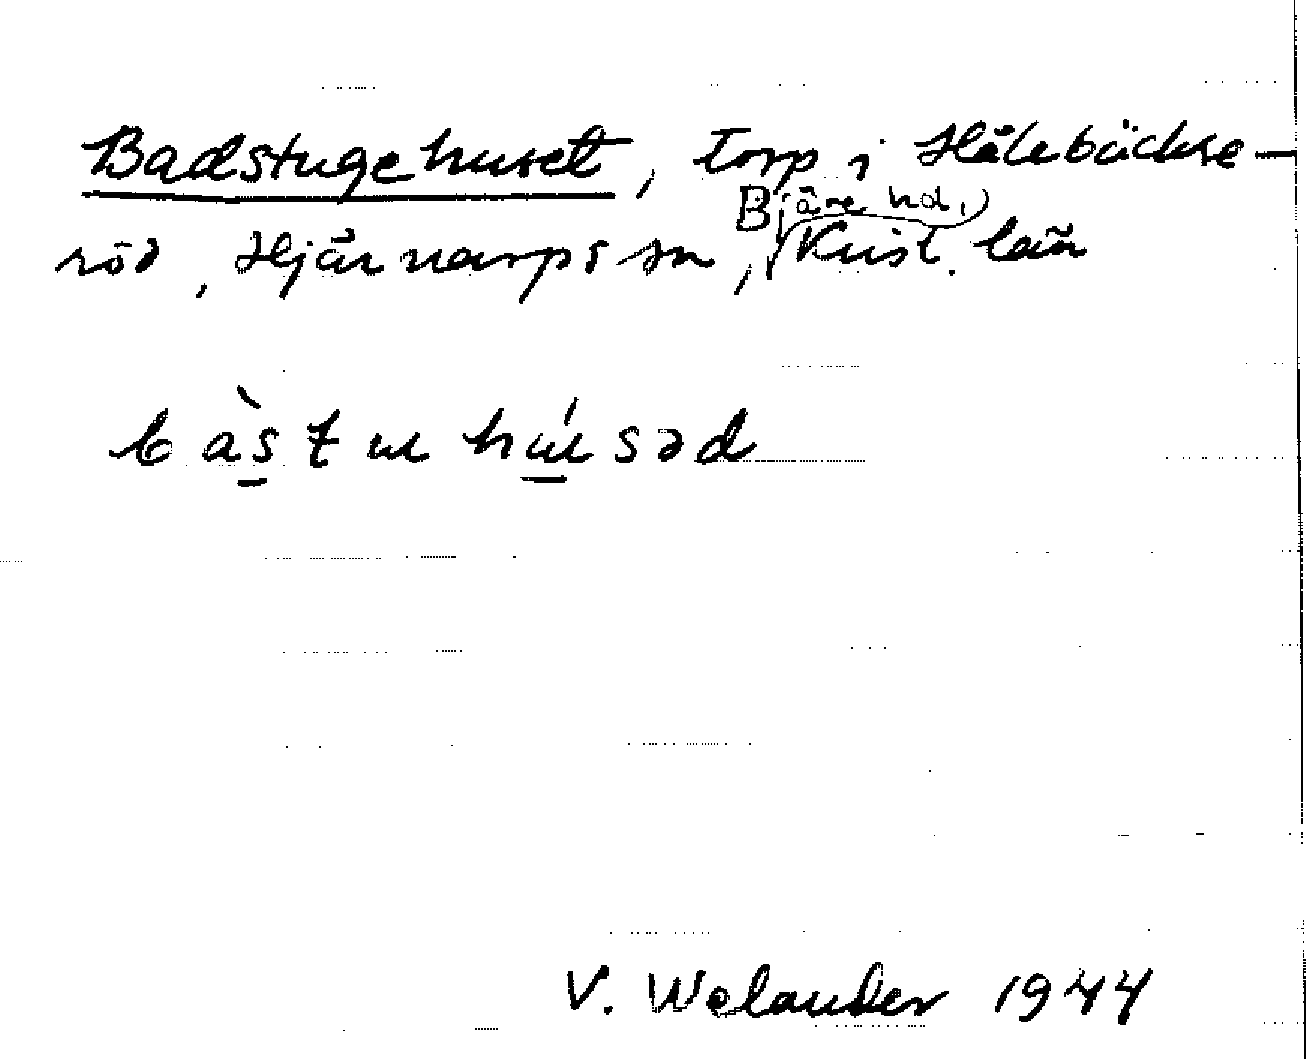 Badstugehuset, torp i Hålebäckse-
röd, Hjärnarps sn, Bjäre hd, Krist. län
bàstu húsəd
V. Welander 1944